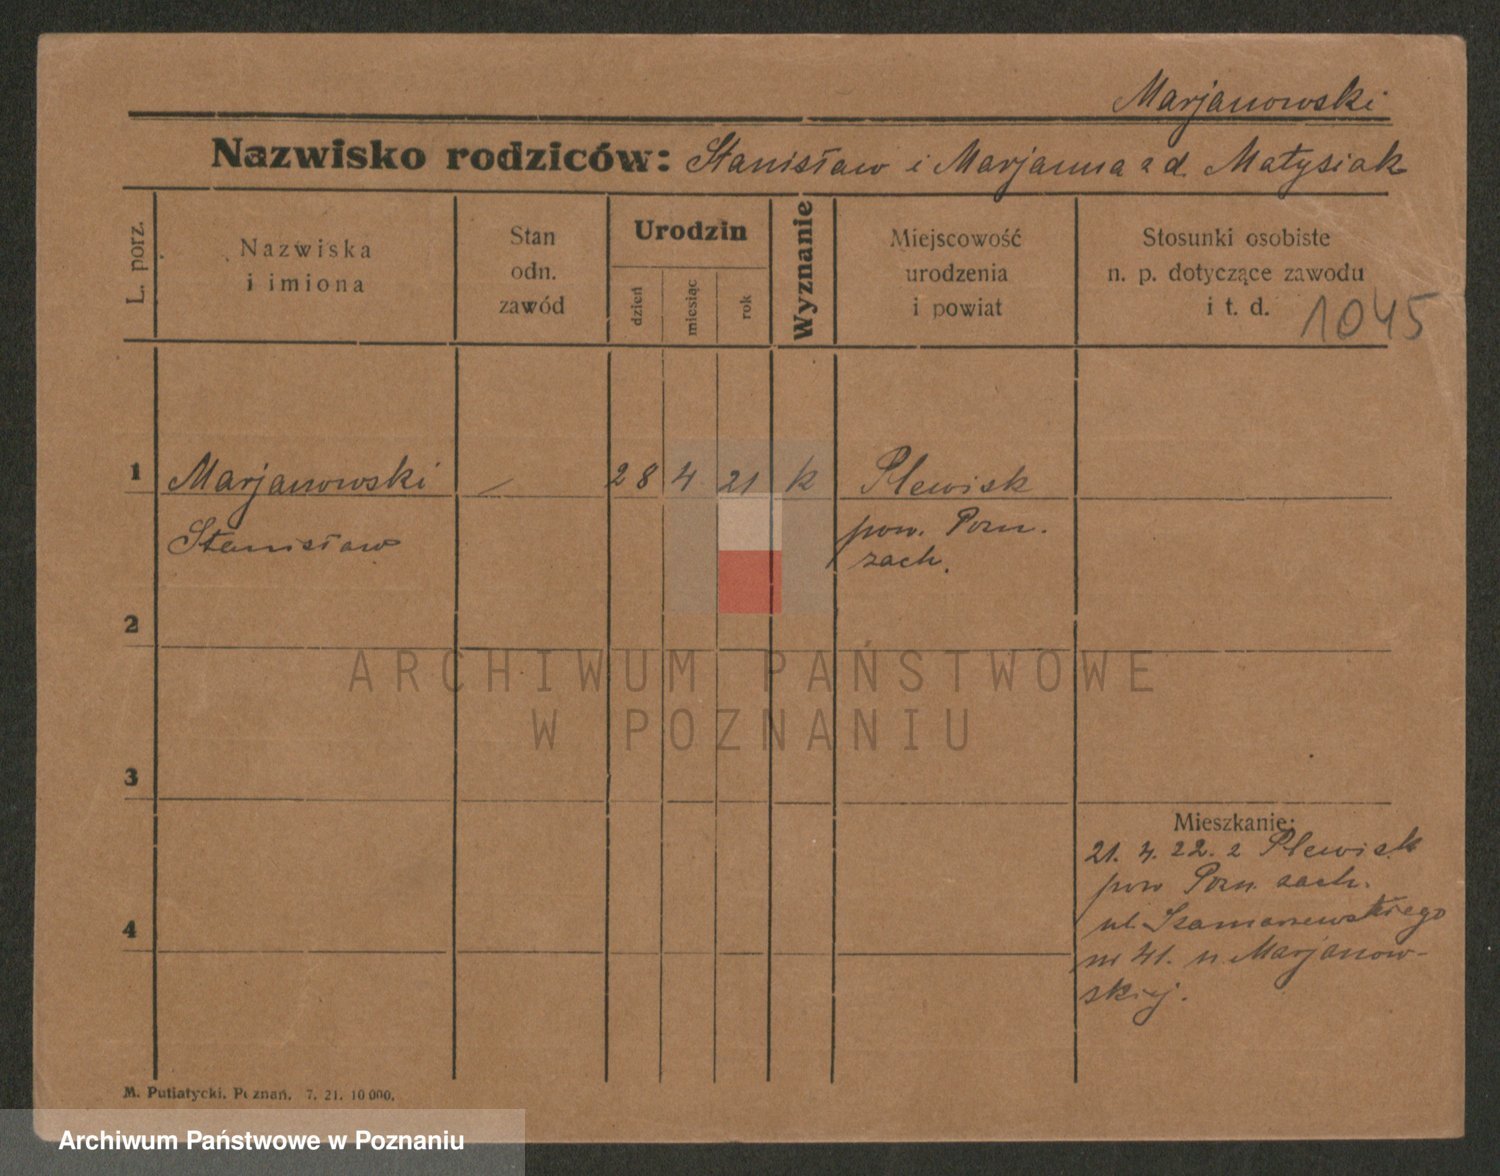 Marjanowski
Nazwisko rodziców: Stanisław i Marjanna z d. Matysiak
L. porz.
Nazwiska
i imiona
Stan
odn.
zawód
Urodzin
dzień
miesiąc
rok
Wyznanie
Miejscowość
urodzenia
i powiat
Stosunki osobiste
n. p. dotyczące zawodu
i t. d.
1045
1 Marjanowski / 28 4 21 k Plewisk
Stanisław pow. Pozn.
zach.
2
ARCHIWUM PAŃSTWOWE
W POZNANIU
3
Mieszkanie:
21. 4. 22. z Plewisk
pow Pozn. zach.
ul. Szamarzewskiego
nr 41. u Marjanow-
skiej.
4
M. Putiatycki. Poznań. 7. 21. 10 000.
Archiwum Państwowe w Poznaniu